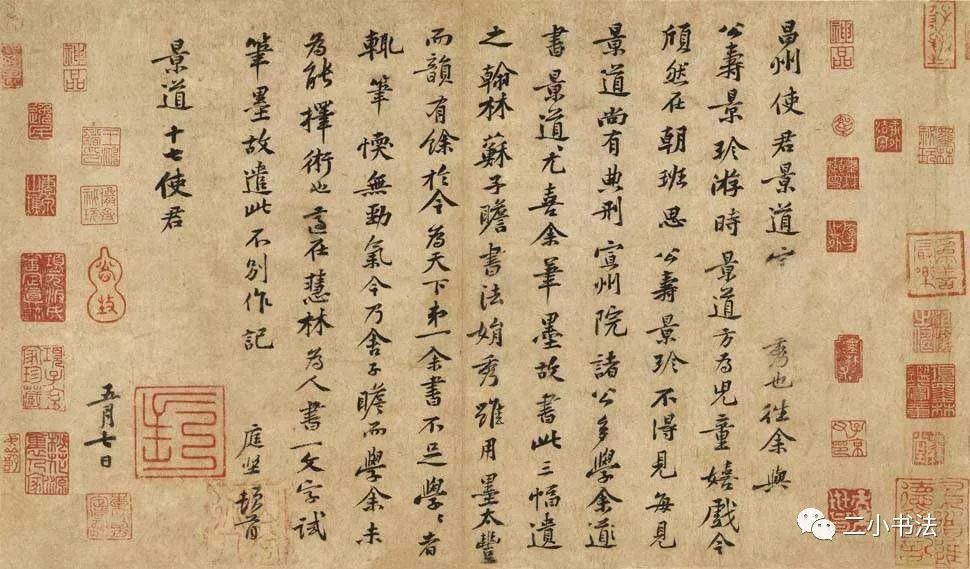 昌州使君景道宗秀也往余與
公壽景珍游時景道方為兒童嬉戲今
頎然在朝班思公壽景珍不得見每見
景道尚有典刑宣州院諸公多學余道
書景道尤喜余筆墨故書此三幅遺
之翰林蘇子瞻書法娟秀雖用墨太豐
而韻有餘於今為天下第一余書不足學〻者
輒筆愞無勁氣今乃舍子瞻而學余未
為能擇術也適在慧林為人書一文字試
筆墨故遣此不別作記
庭堅頓首
景道十七使君
五月七日
神品
神品
二小书法